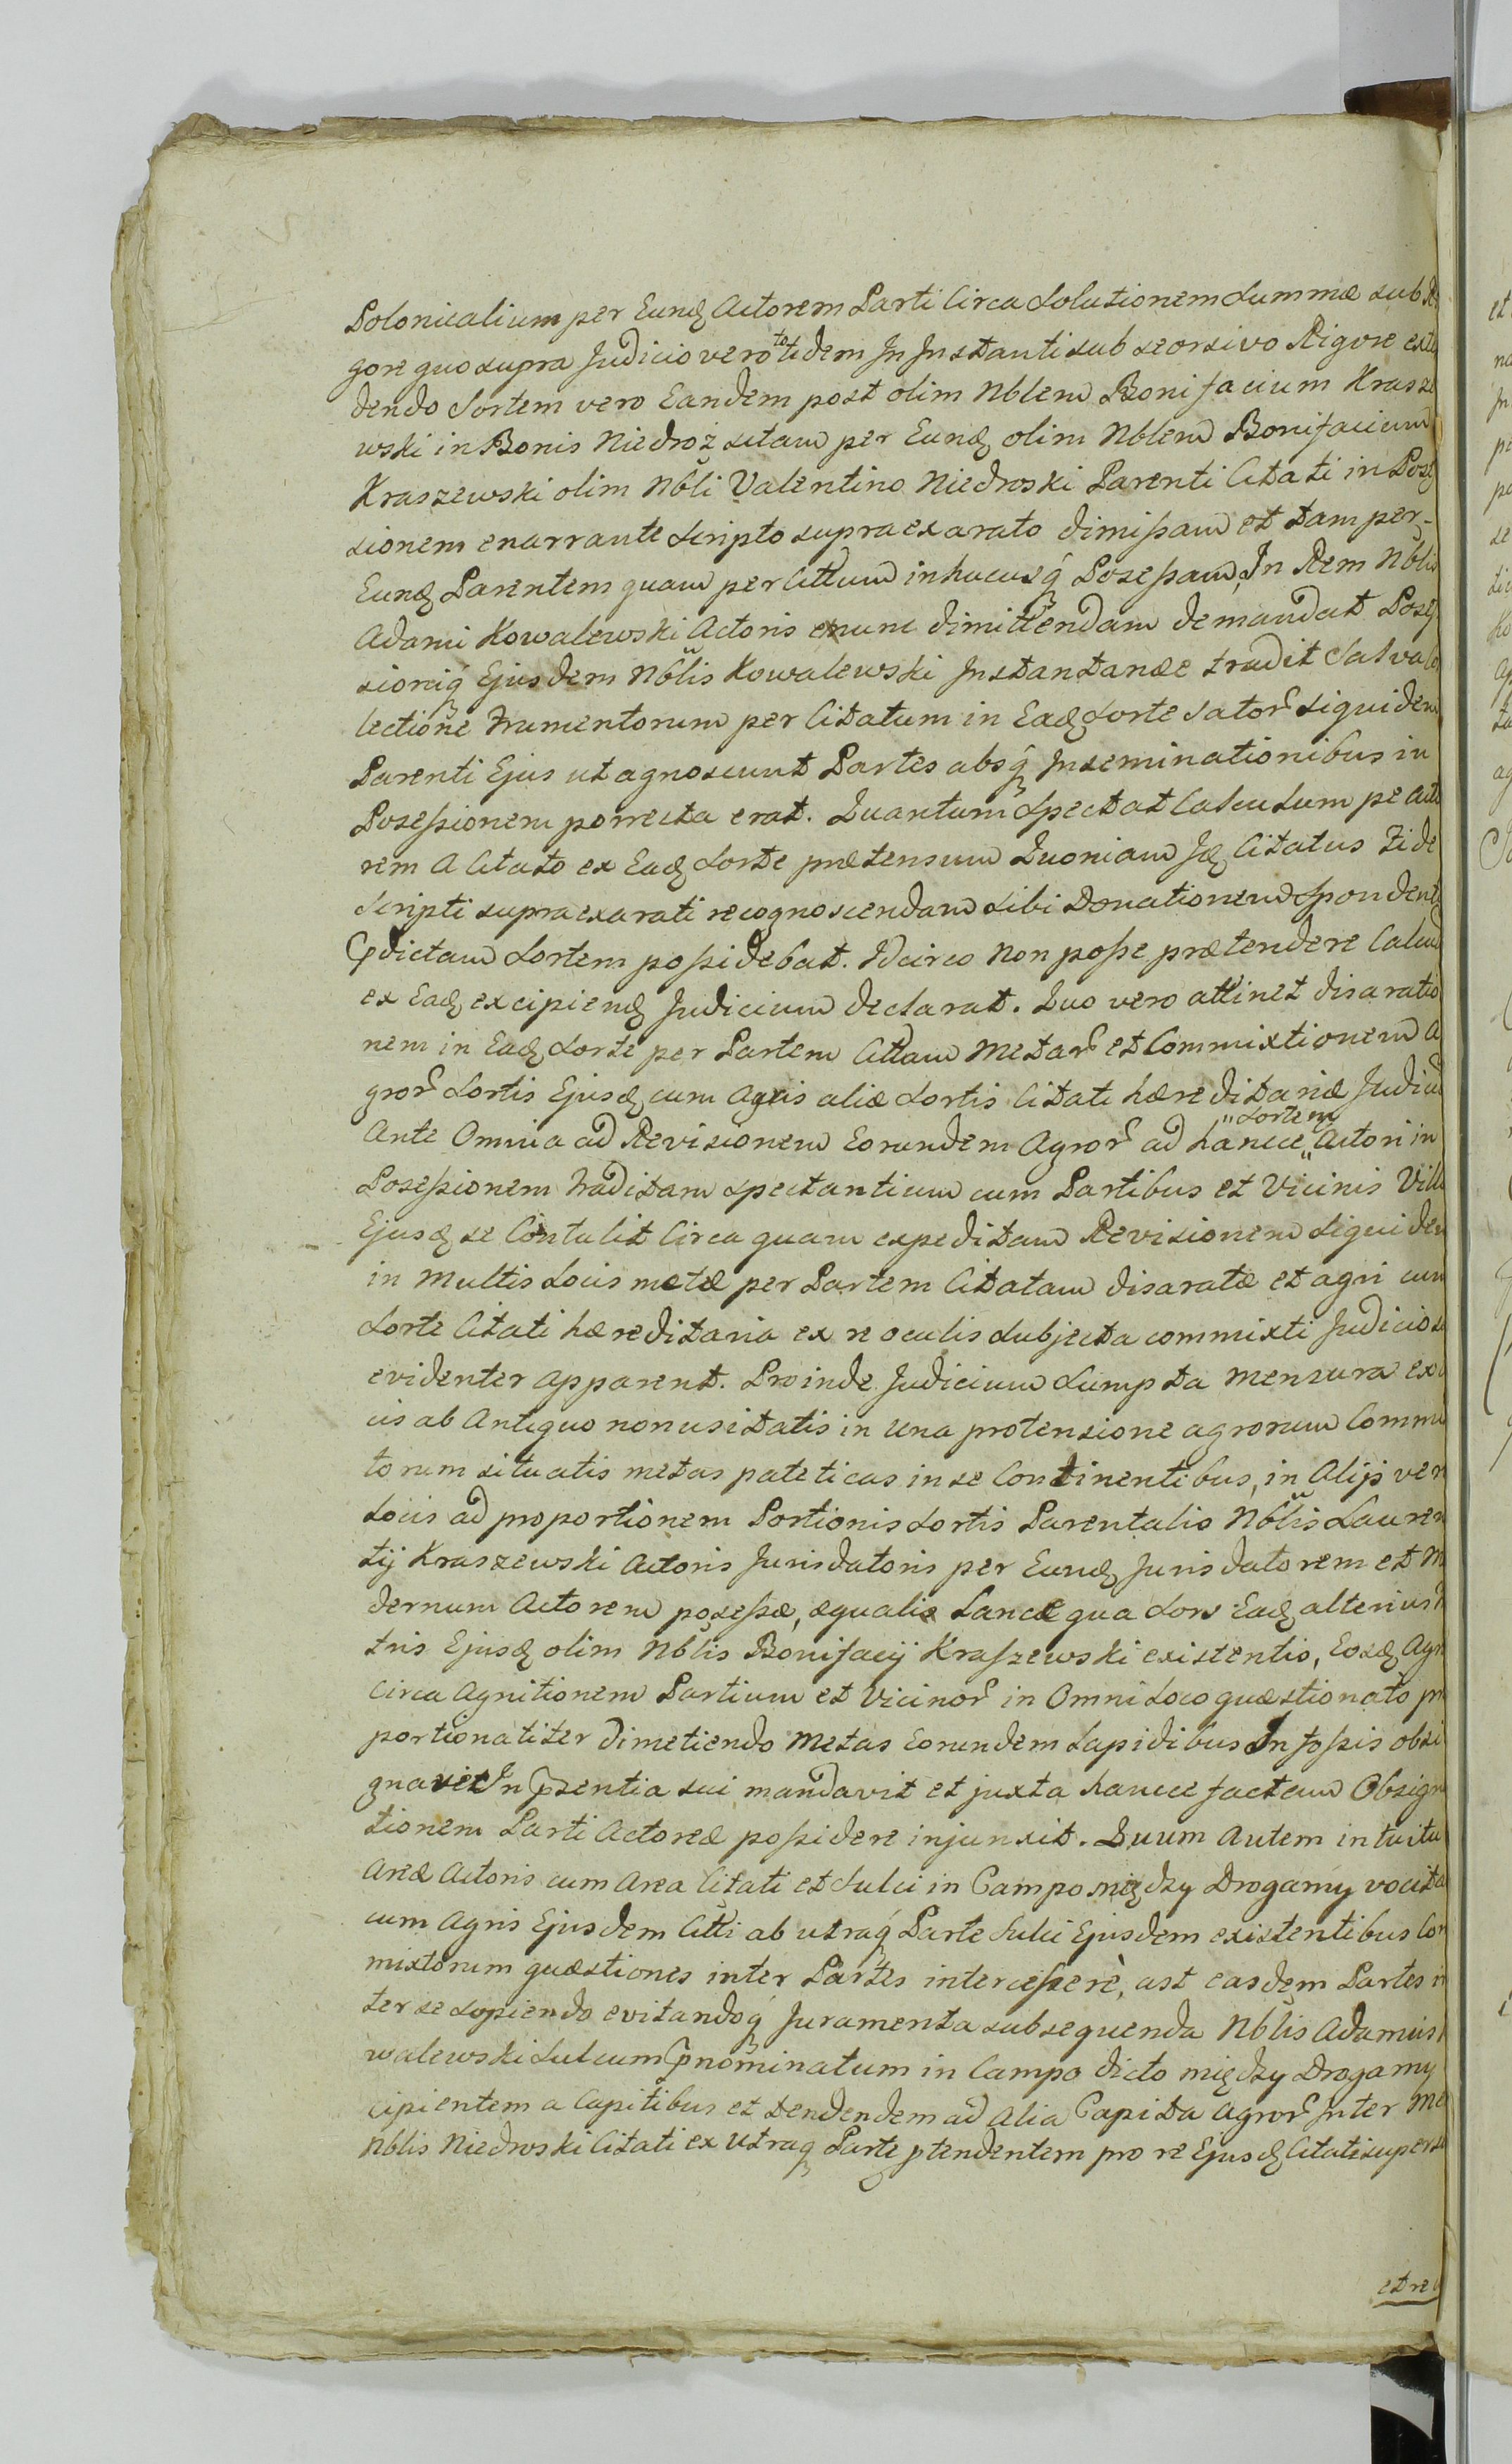 Polonicalium per Eund Actorem Parti Circa Solutionem Summæ sub Ri
gore quo supra Judicio vero totidem In Instanti sub seorsivo Rigore exte
dendo Sortem vero Eandem post olim Nblem Bonifacium Krasze
wski in Bonis Niedroż sitam per Eund olim Nblem Bonifacium
Kraszewski olim Nbli Valentino Niedroski Parenti Citati in Posse
sionem enarrante Scripto supra exarato dimissam et tam per
Eund Parentem quam per Cittum in hucusq Posessam, In Rem Nblis
Adami Kowalewski Actoris exnunc dimittendam demandat Posse
sioniq Ejusdem Nblis Kowalewski Instantanæe tradit Salva Col
lectione Frumentorum per Citatum in Ead Sorte Sator Siquidem
Parenti Ejus ut agnoscunt Partes absq Inseminationibus in
Posessionem porrecta erat. Quantum Spectat Calculum pe Acto
rem A Citato ex Ead Sorte prætensum Quoniam Id Citatus Fide
Scripti supra exarati recognoscendam sibi Donationem Spondent
Pdictam Sortem possidebat. Idcirco Non posse prætendere Calcul
ex Ead excipiend Judicium declarat. Quo vero attinet disaratio
nem in Ead Sorte per Partem Cittam Metar et Commixtionem A
gror Sortis Ejusd cum Agris aliæ Sortis Citati hæreditariæ Judiciu
Ante Omnia ad Revisionem Eorundem Agror ad hancce "Sortem" Actori in
Posessionem traditam spectantium cum Partibus et Vicinis Villæ
Ejusd se Contulit Circa quam expeditam Revisionem Siquidem
in Multis Locis metæ per Partem Citatam disaratæ et agri cum
Sorte Citati hæreditaria ex re oculis Subjecta commixti Judicio
evidenter apparent. Proinde Judicium Sumpta Mensura ex
cis ab Antiquo non usitatis in Una protensione agrorum Commix
torum situatis metas pateticas in se Continentibus, in Alijs vero
Locis ad proportionem Portionis Sortis Parentalis Nblis Lauren
tij Kraszewski Actoris Jurisdatoris per Eund Jurisdatorem et Mo
dernum Actorem posessæ, æqualis Lance qua Sors Ead alterius
tris Ejusd olim Nblis Bonifacij Kraszewski existentis, Eosd Agr
circa Agnitionem Partium et Vicinor in Omni Loco quæstionato pro
portionatiter dimetiendo Metas Eorundem Lapidibus In fossis obsi
gnavit In Psentia sui mandavit et juxta hancce factam Obsigna
tionem Parti Actoreæ possidere injunxit. Quum Autem intuitu
Areæ Actoris cum Area Citati et Sulci in Campo między Drogamy vocita
cum Agris Ejusdem Citti ab utraq Parte Sulci Ejusdem existentibus Com
mixtorum quæstiones inter Partes intercessere, ast easdem Partes in
ter se Sopiendo evitandoq Juramenta subsequenda Nblis Adamus Ko
walewski Sulcum Pnominatum in Campo dicto między Drogamy
cipientem a Capitibus et tendendem ad Alia Capita Agror Inter Me
Nblis Niedroski Citati ex Utraq Parte ptendentem pro re Ejusd Citati super
et re